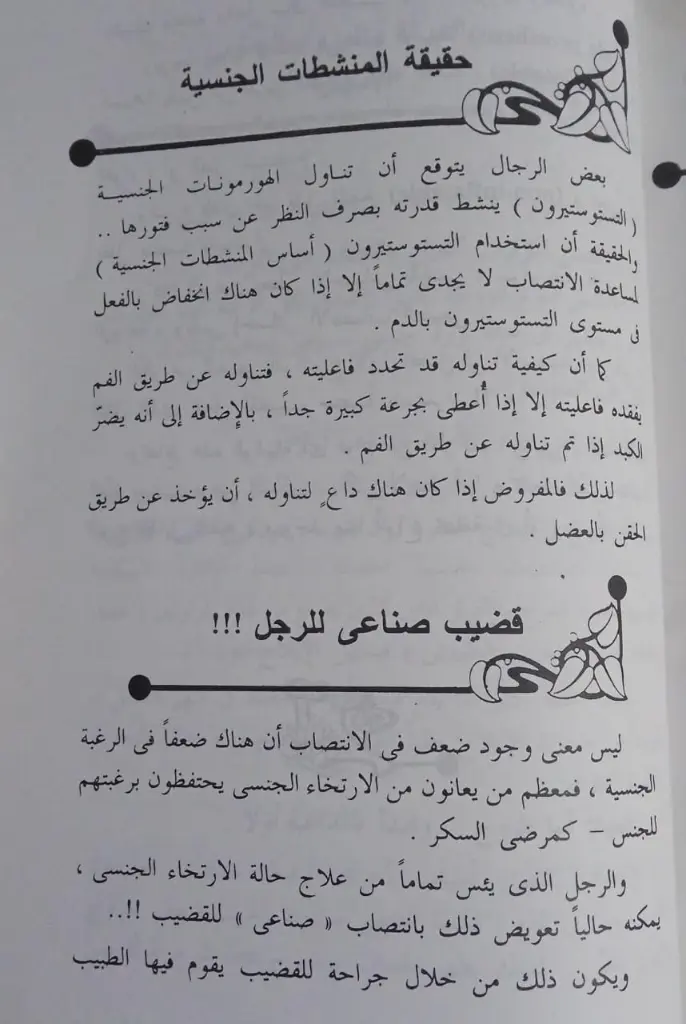 حقيقة المنشطات الجنسية
بعض الرجال يتوقع أن تناول الهورمونات الجنسية
( التستوستيرون ) ينشط قدرته بصرف النظر عن سبب فتورها ..
والحقيقة أن استخدام التستوستيرون ( أساس المنشطات الجنسية )
لمساعدة الانتصاب لا يجدى تماماً إلا إذا كان هناك انخفاض بالفعل
فى مستوى التستوستيرون بالدم .
كما أن كيفية تناوله قد تحدد فاعليته ، فتناوله عن طريق الفم
يفقده فاعليته إلا إذا أُعطى بجرعة كبيرة جداً ، بالإضافة إلى أنه يضرّ
الكبد إذا تم تناوله عن طريق الفم .
لذلك فالمفروض إذا كان هناك داعٍ لتناوله ، أن يؤخذ عن طريق
الحقن بالعضل .
قضيب صناعى للرجل !!!
ليس معنى وجود ضعف فى الانتصاب أن هناك ضعفاً فى الرغبة
الجنسية ، فمعظم من يعانون من الارتخاء الجنسى يحتفظون برغبتهم
للجنس – كمرضى السكر .
والرجل الذى يئس تماماً من علاج حالة الارتخاء الجنسى ،
يمكنه حالياً تعويض ذلك بانتصاب « صناعى » للقضيب !!..
ويكون ذلك من خلال جراحة للقضيب يقوم فيها الطبيب